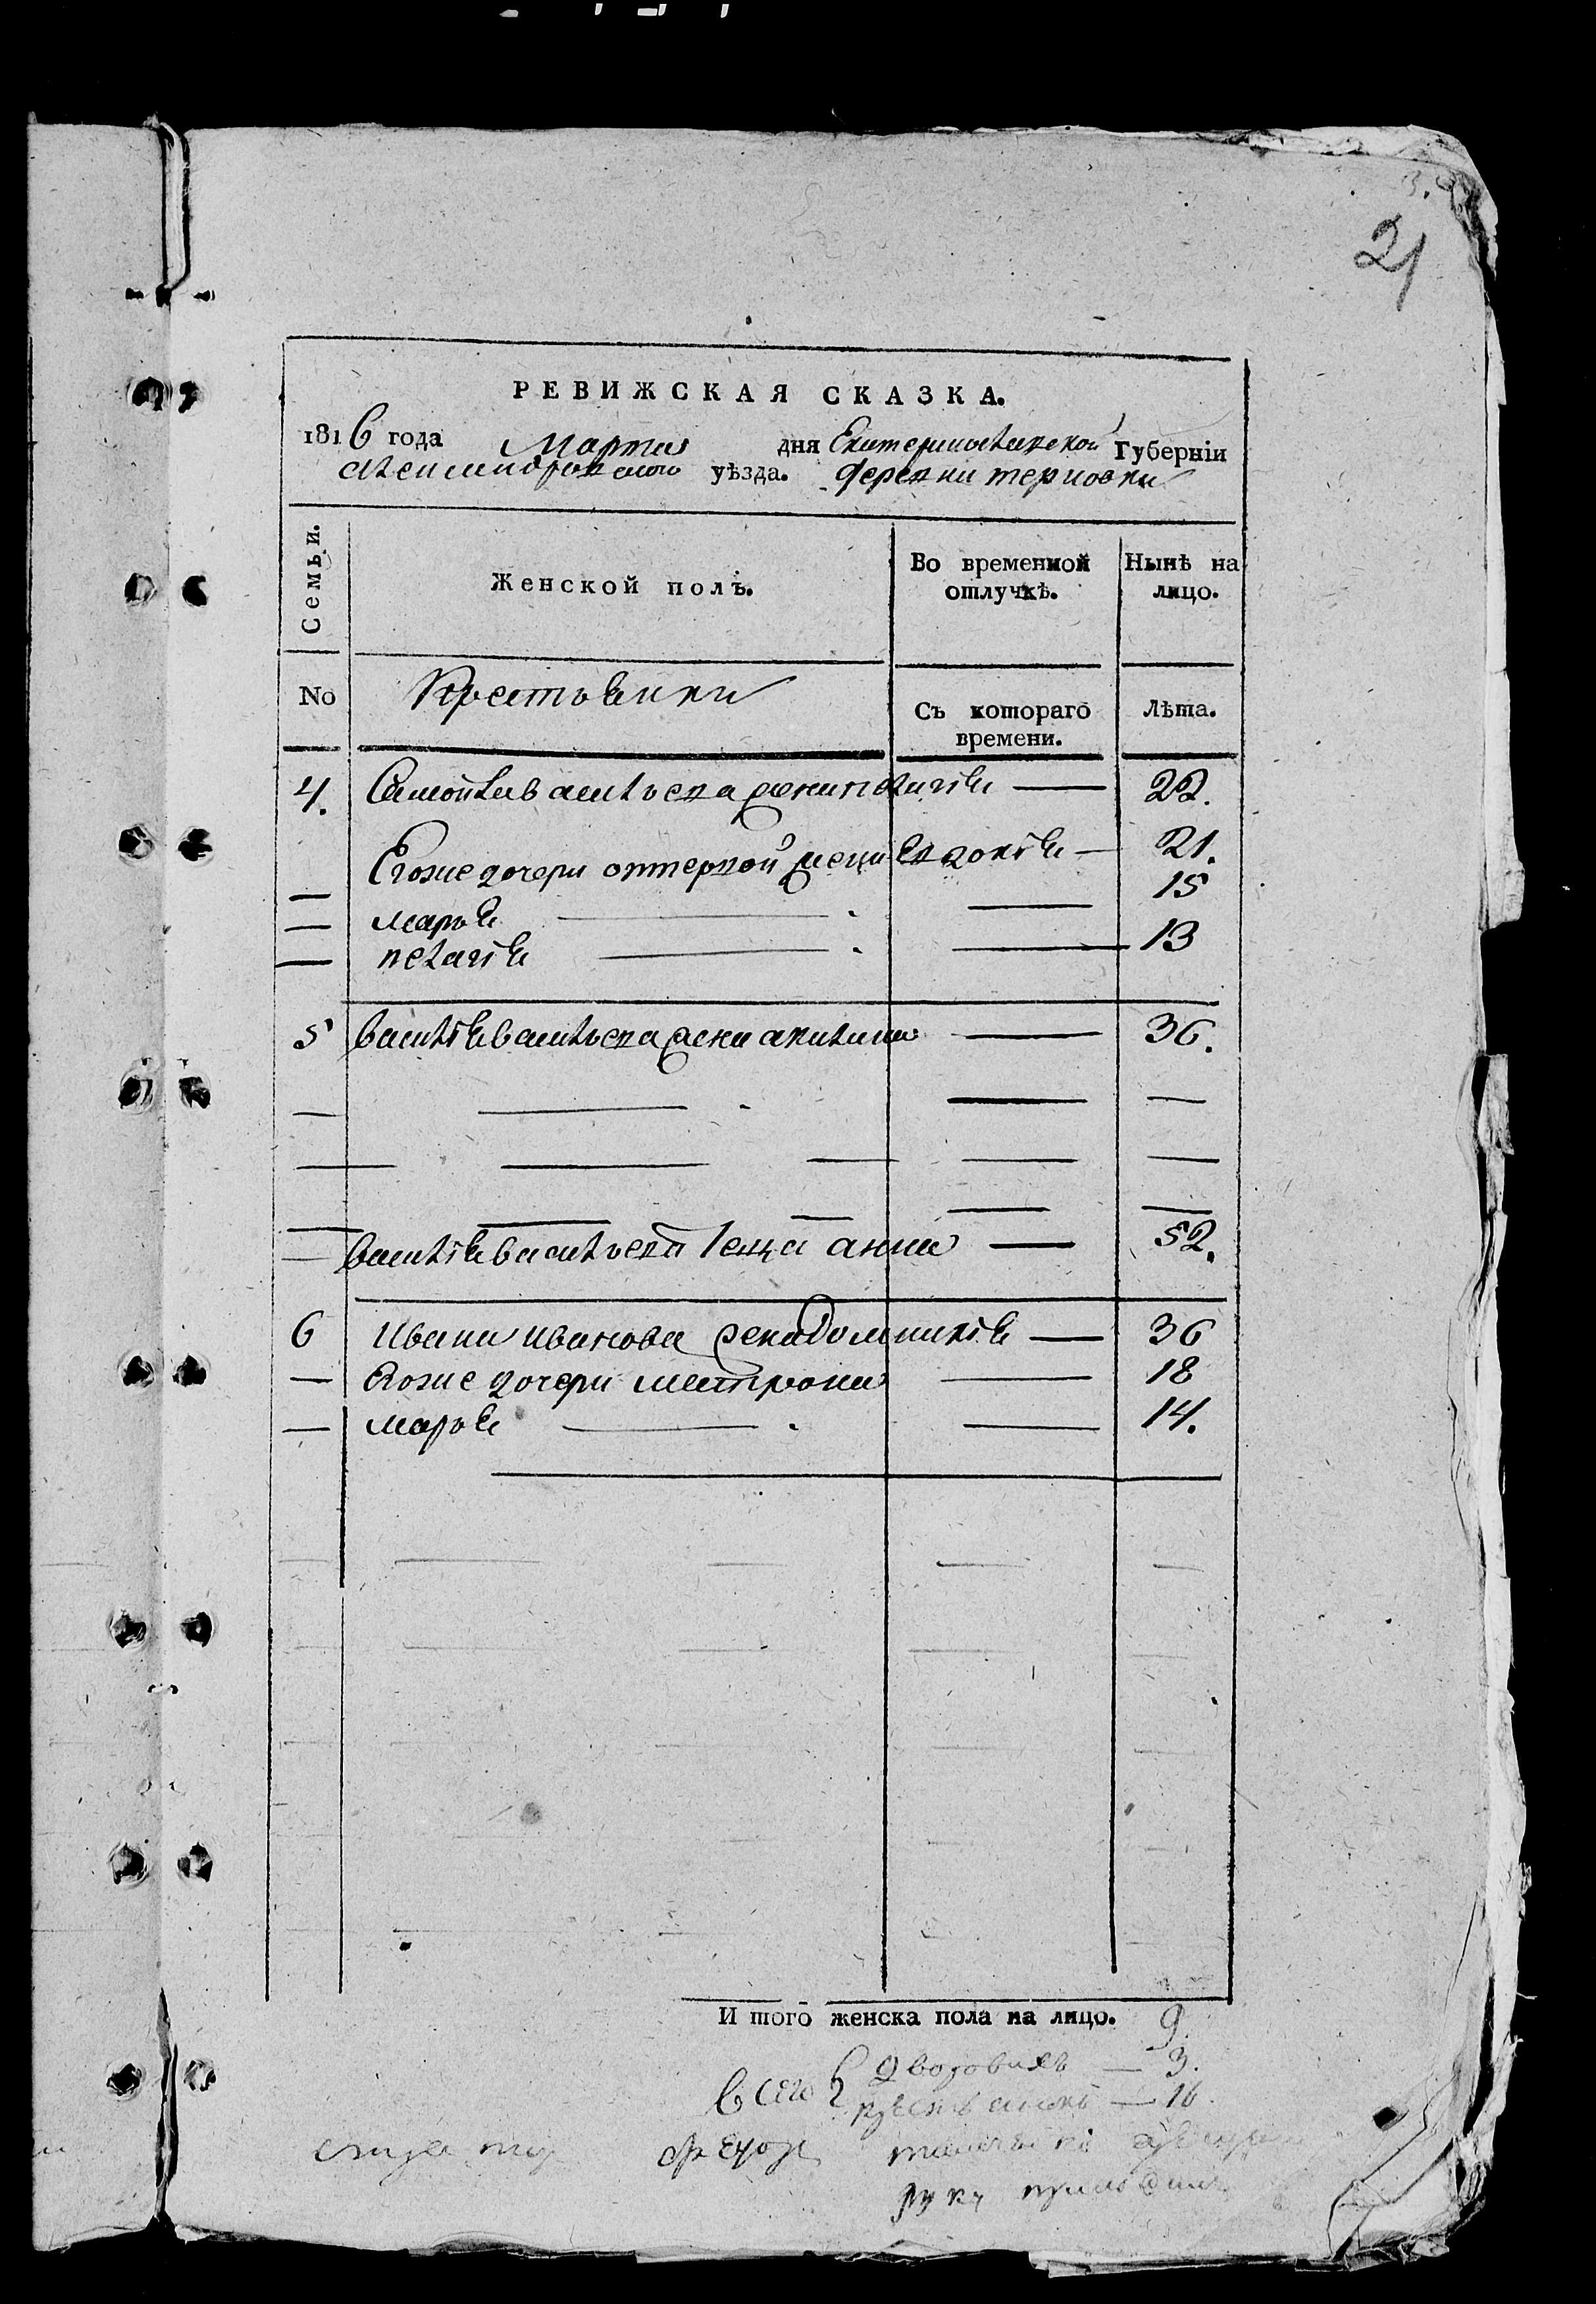 3.
21
РЕВИЖСКАЯ СКАЗКА.
1816 года Марта дня Екатеринославской Губерніи
александровского уѣзда. деревни терновки
Семьи. Женской полъ. Во временной отлучкѣ. Нынѣ на лицо.
No Крестьянки Съ котораго времени. Лѣта.
4. Самойла васильева жена пелагія — 22.
Егоже дочери отпервой жены евдокія — 21.
— марья — 15
— пелагія — 13
5 василія васильева жена акилина — 36.
— василія васильева теща анна — 52.
6 Ивана иванова жена домникія — 36
— Егоже дочери матрона — 18
— марья — 14.
И того женска пола на лицо. 9.
всего дворовихъ — 3.
крестьянокъ — 16.
федор
руку приложил